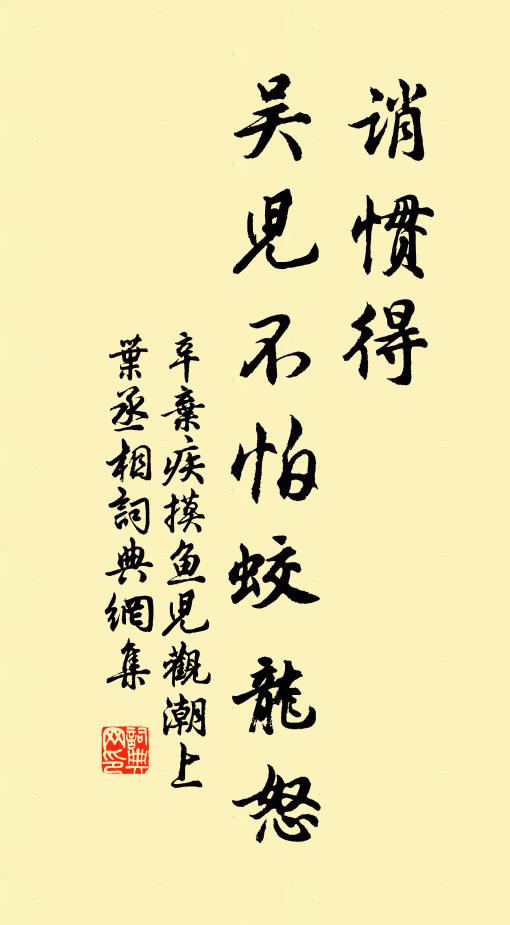 誚慣得
吴児不怕蛟龍怒
辛棄疾摸鱼児觀潮上
葉丞相詞典網集
詞典
网印